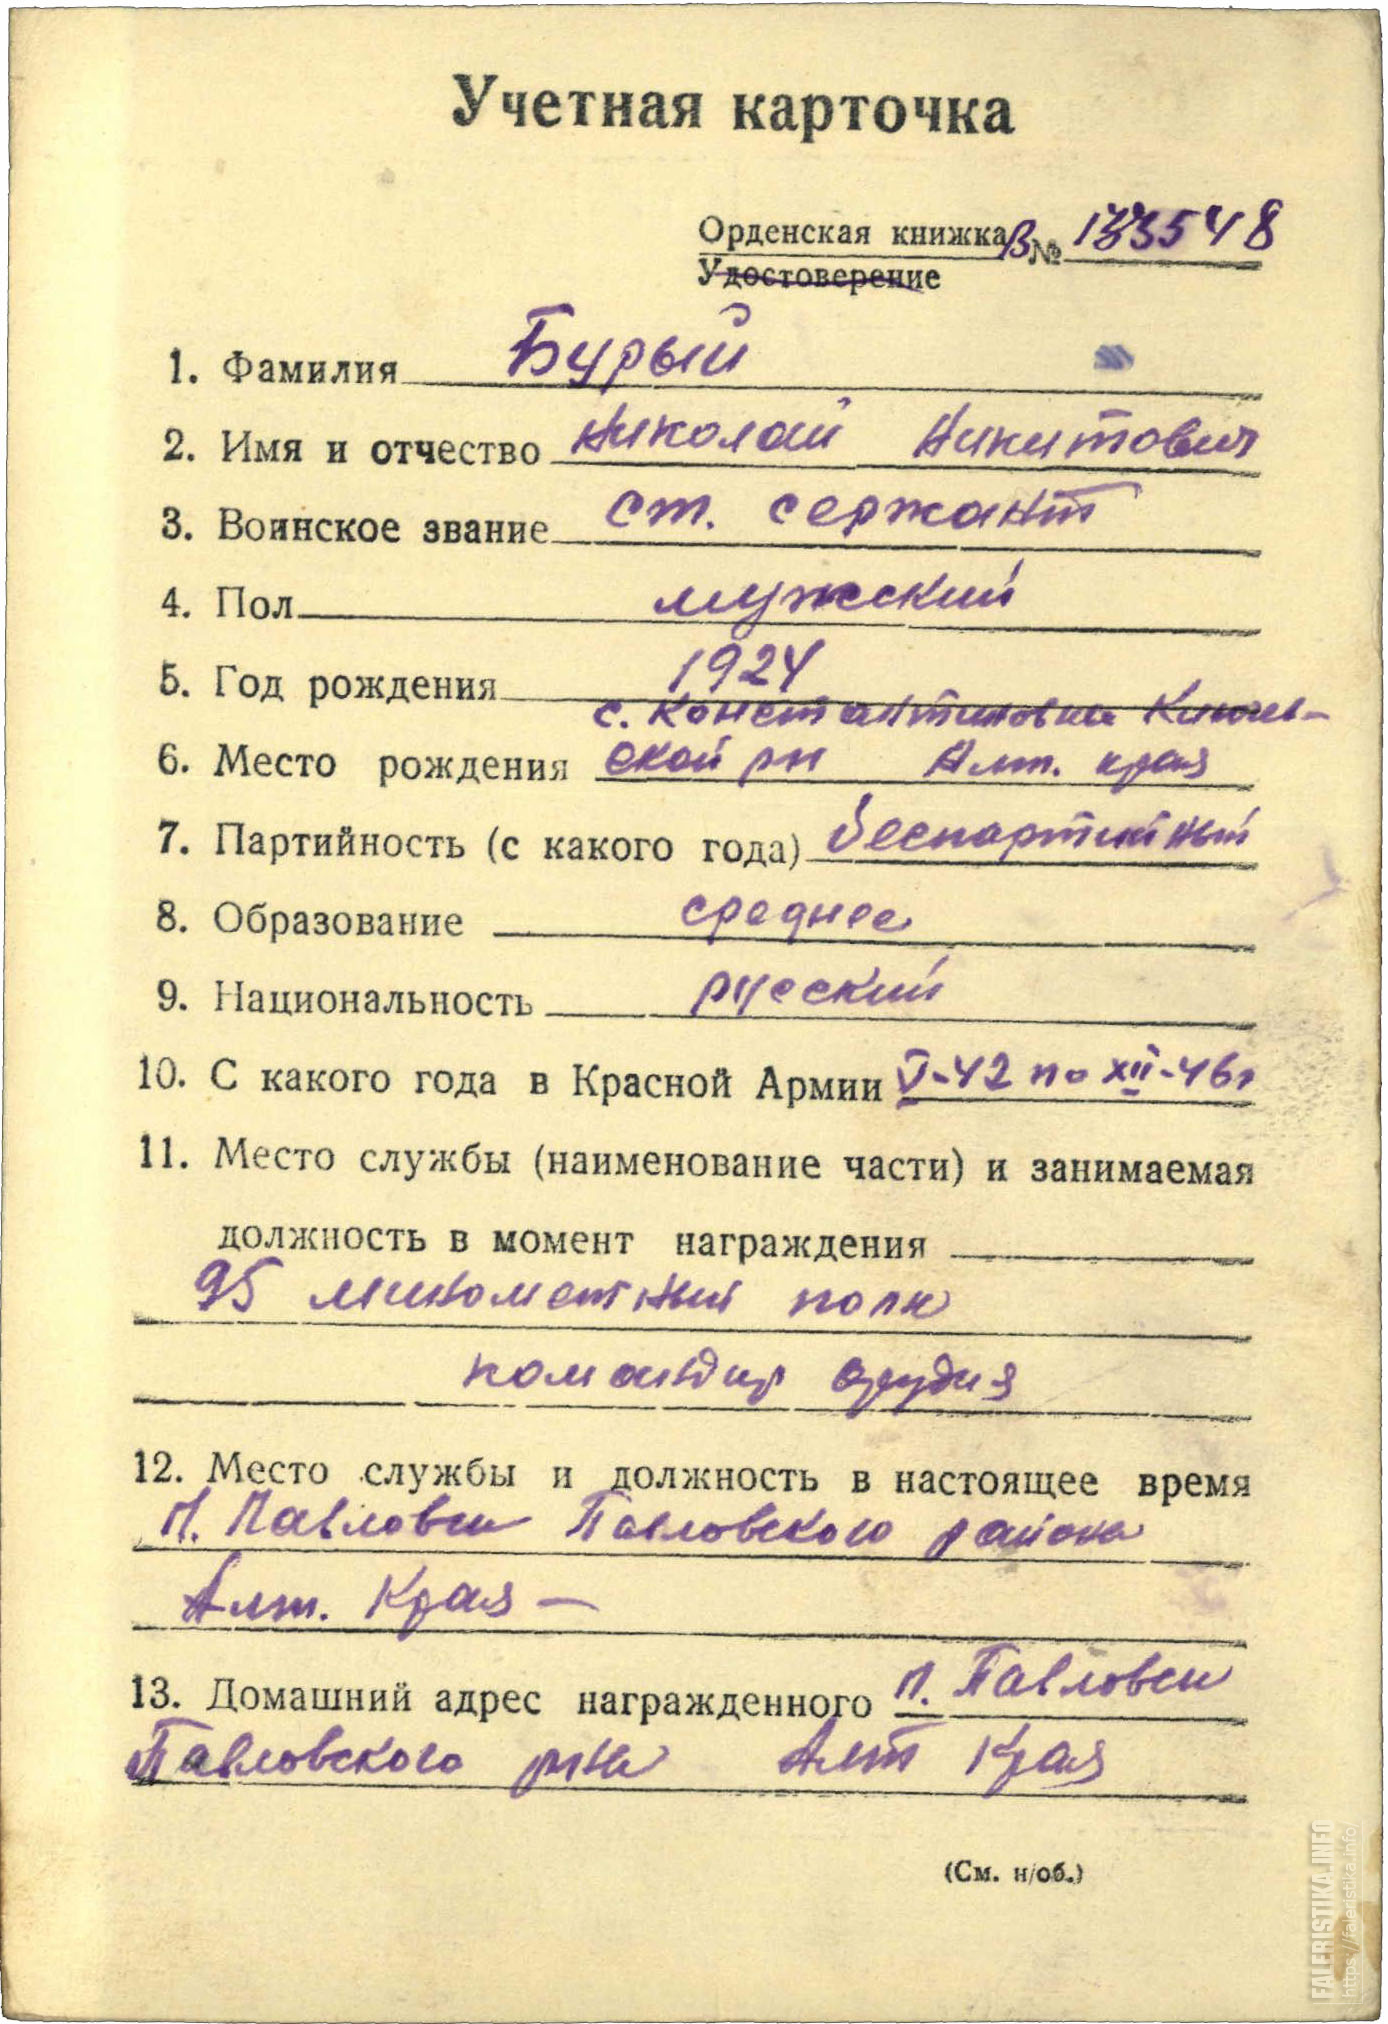 Учетная карточка
Орденская книжка В № 133548
Удостоверение
1. Фамилия Бурый
2. Имя и отчество Николай Никитович
3. Воинское звание ст. сержант
4. Пол мужский
5. Год рождения 1924
с. Константиновка Ключев-
6. Место рождения ской рн Алт. края
7. Партийность (с какого года) беспартийный
8. Образование среднее
9. Национальность русский
10. С какого года в Красной Армии V-42 по XII-46г
11. Место службы (наименование части) и занимаемая
должность в момент награждения
95 минометный полк
командир орудия
12. Место службы и должность в настоящее время
п. Павловск Павловского района
Алт. Края —
13. Домашний адрес награжденного п. Павловск
Павловского рна Алт Края
(См. н/об.)
FALERISTIKA.INFO
https://faleristika.info/